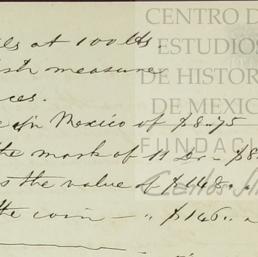 CENTRO D
ESTUDIOS
DE HISTOR
DE MEXIC
FUNDACI
Carlos Sl
ls at 100 lbs.
ish measure
ces.
in Mexico of $8.75
the mark of 11 Dr - $8
s the value of $148
the coin - " $146